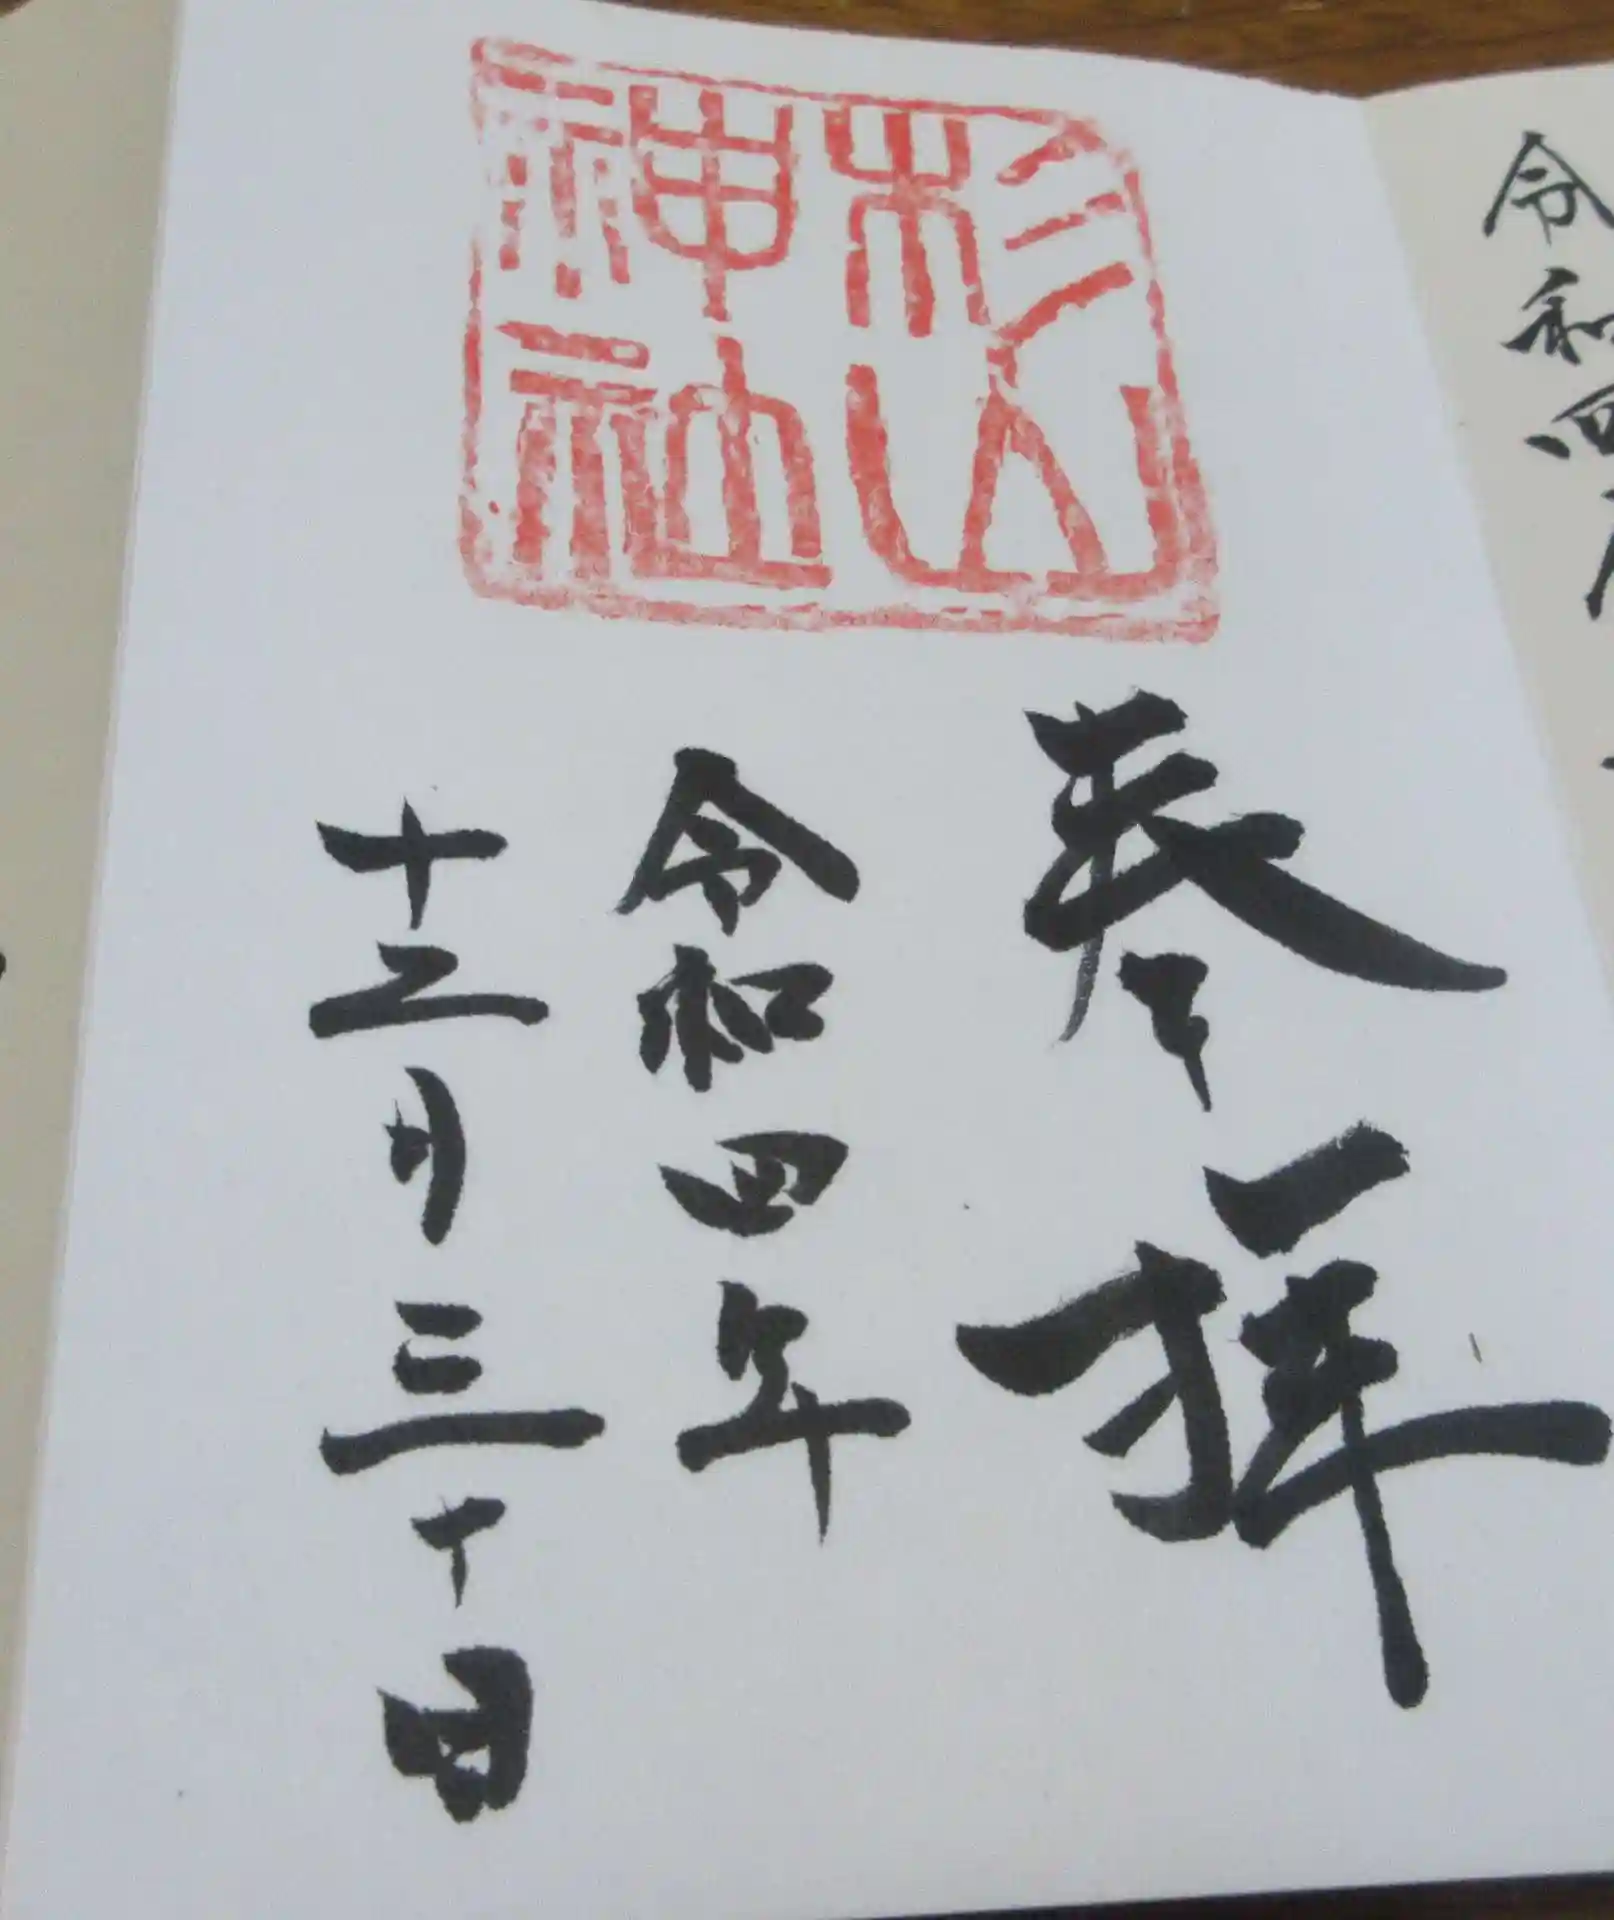 杉山
神社
参拝
令和四年
十二月三十日
令和四